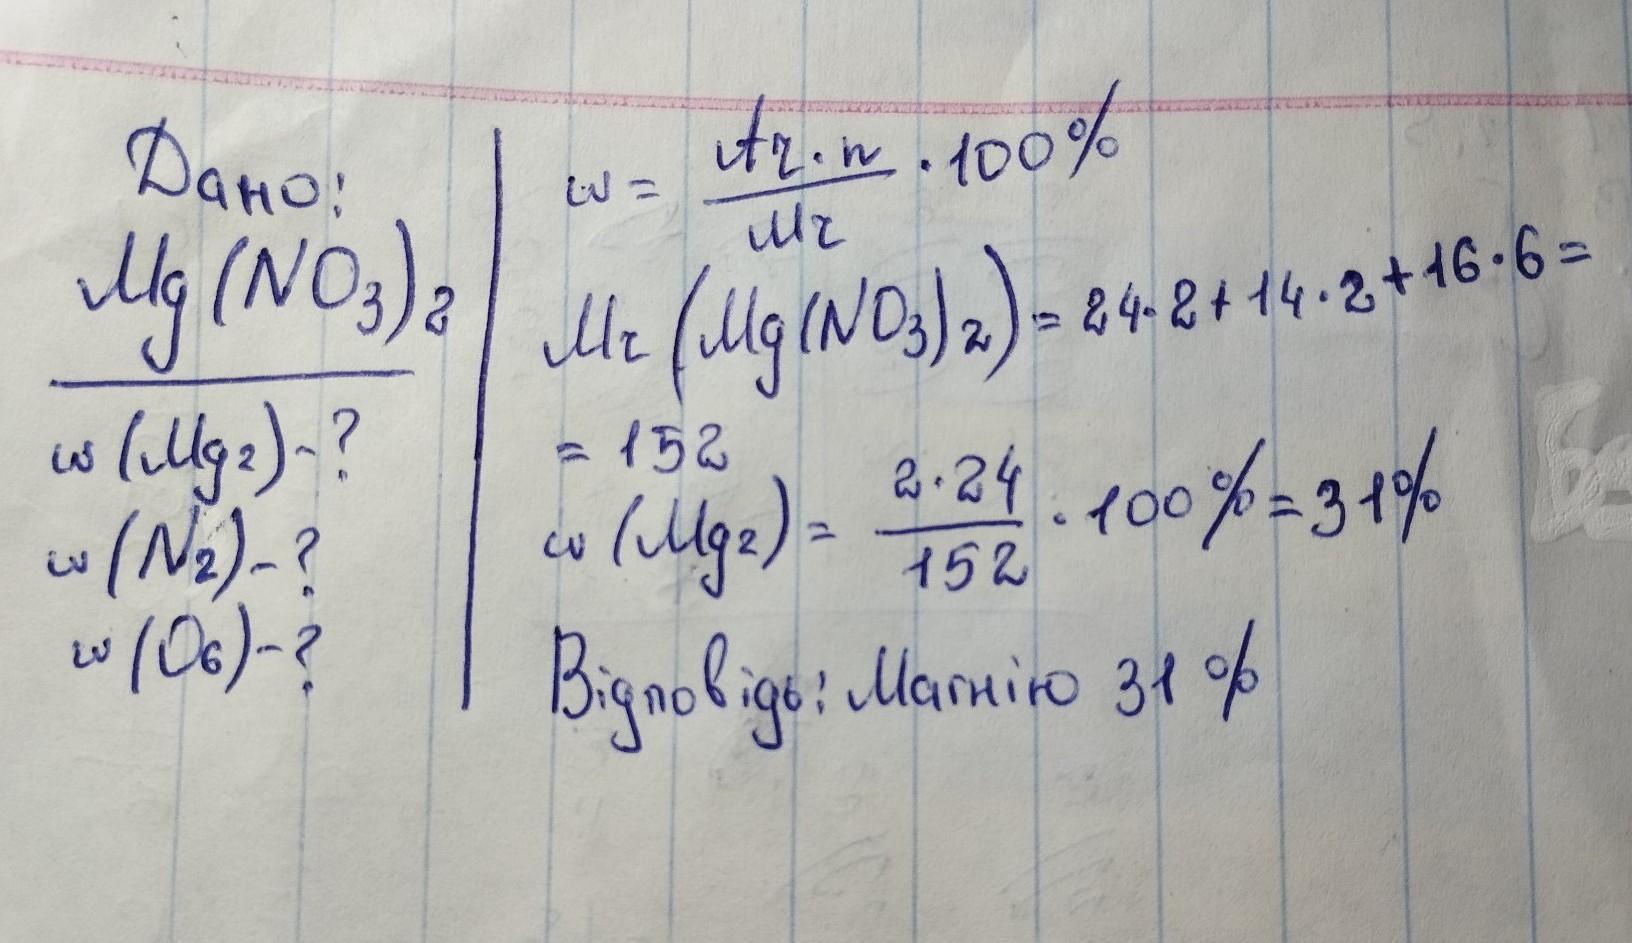 Дано:
Mg(NO₃)₂
w(Mg₂)-?
w(N₂)-?
w(O₆)-?
w = Ar·n/Mr · 100%
Mr(Mg(NO₃)₂) = 24·2+14·2+16·6=
= 152
w(Mg₂) = 2·24/152 · 100% = 31%
Відповідь: Магнію 31%